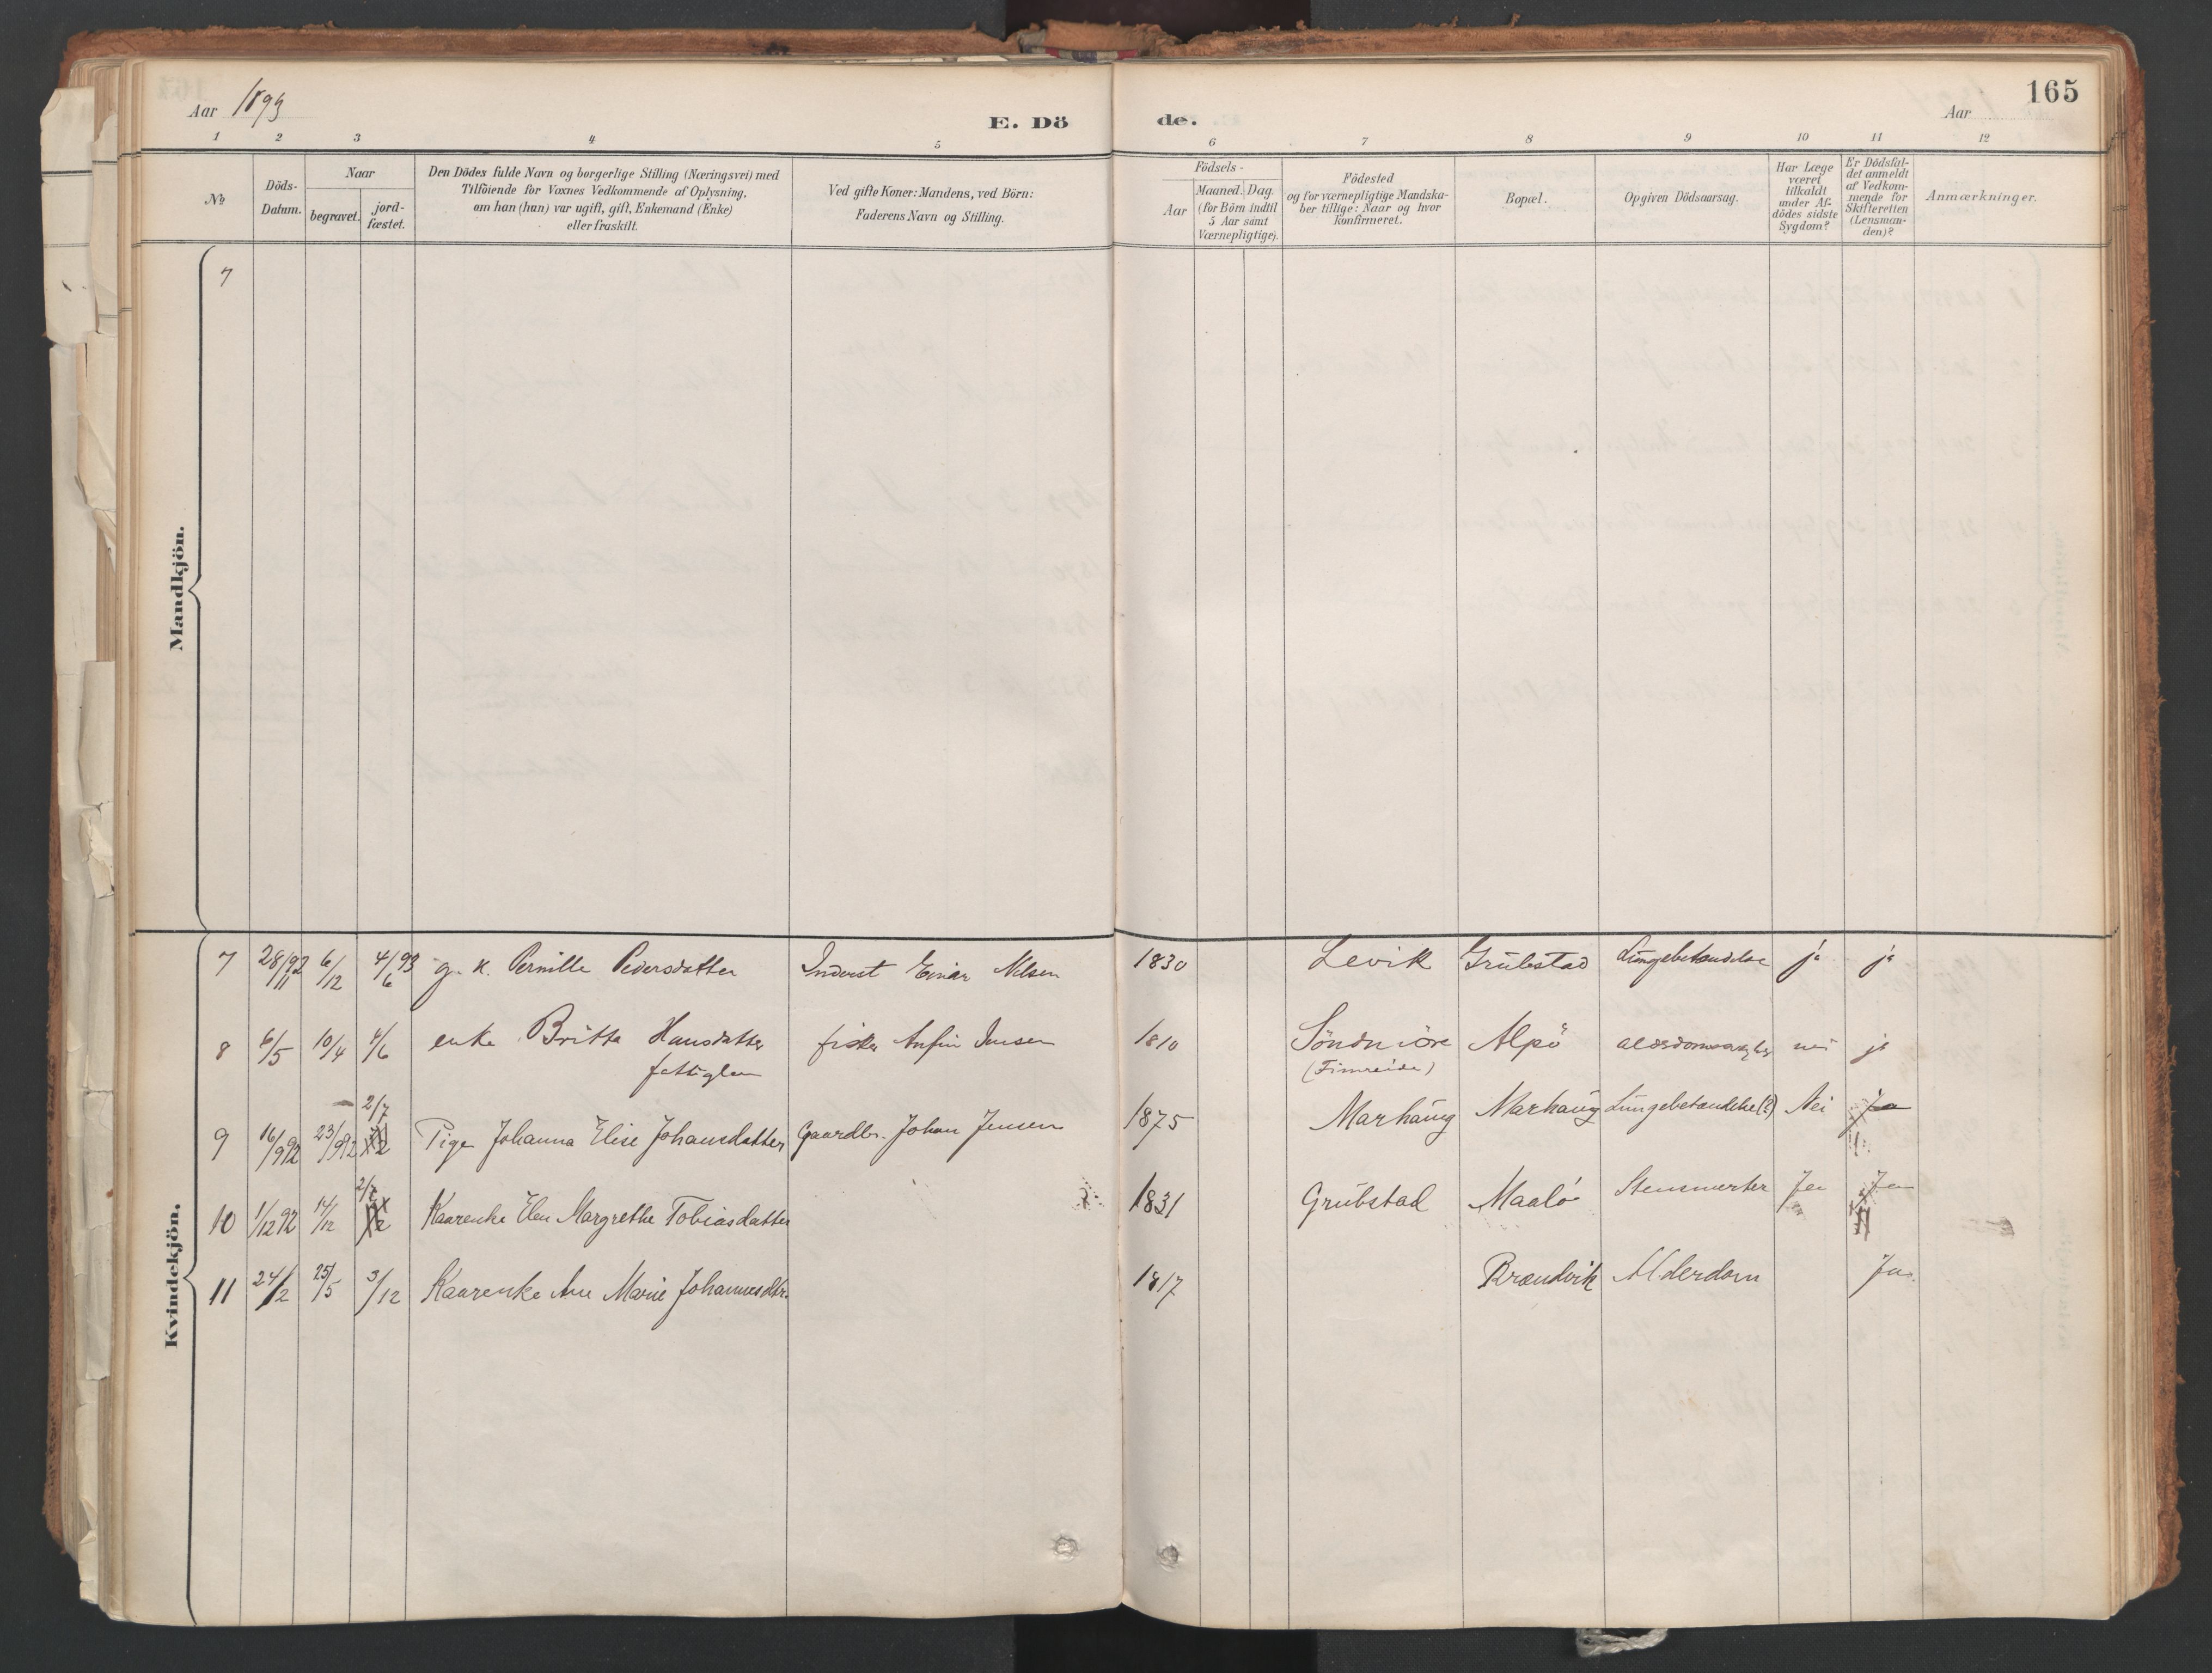 165
Aar 1893
E. Dö
de.
Aar
1 2 3 4 5 6 7 8 9 10 11 12
№
Döds-
Datum.
Naar
begravet.
jord-
fæstet.
Den Dödes fulde Navn og borgerlige Stilling (Næringsvei) med
Tilföiende for Voxnes Vedkommende af Oplysning,
om han (hun) var ugift, gift, Enkemand (Enke)
eller fraskilt.
Ved gifte Koner: Mandens, ved Börn:
Faderens Navn og Stilling.
Födsels-
Aar
Maaned. Dag.
(for Börn indtil
5 Aar samt
Værnepligtige).
Födested
og for værnepligtige Mandska-
ber tillige: Naar og hvor
konfirmeret.
Bopæl.
Opgiven Dödsaarsag.
Har Læge
været
tilkaldt
under Af-
dödes sidste
Sygdom?
Er Dödsfal-
det anmeldt
af Vedkom-
mende for
Skifteretten
(Lensman-
den)?
Anmærkninger.
Mandkjön.
7
Kvindekjön.
7 28/11 92 6/12 4/6 93 g. k. Pernille Pedersdatter Inderst Einar Nilsen 1830 Levik Grubstad Lungebetændelse ja ja
8 6/5 10/4 4/6 enke Britta Hansdatter fisker Anfin Jensen 1810 Söndmöre Alpö nei ja
fattiglem (Fimreide)
2/7
9 16/9 92 23/9 92 Pige Johanna Elise Johansdatter Gaardbr. Johan Jensen 1875 Marhaug Marhaug Lungebetændelse(?) Nei Ja
2/7
10 1/12 92 14/12 Kaarenke Elen Margrethe Tobiasdatter 1831 Grubstad Maalö Stensmerter Ja Ja
11 24/2 25/5 3/12 Kaarenke Ane Marie Johannesdtr. 1817 Brændvik Alderdom Ja.